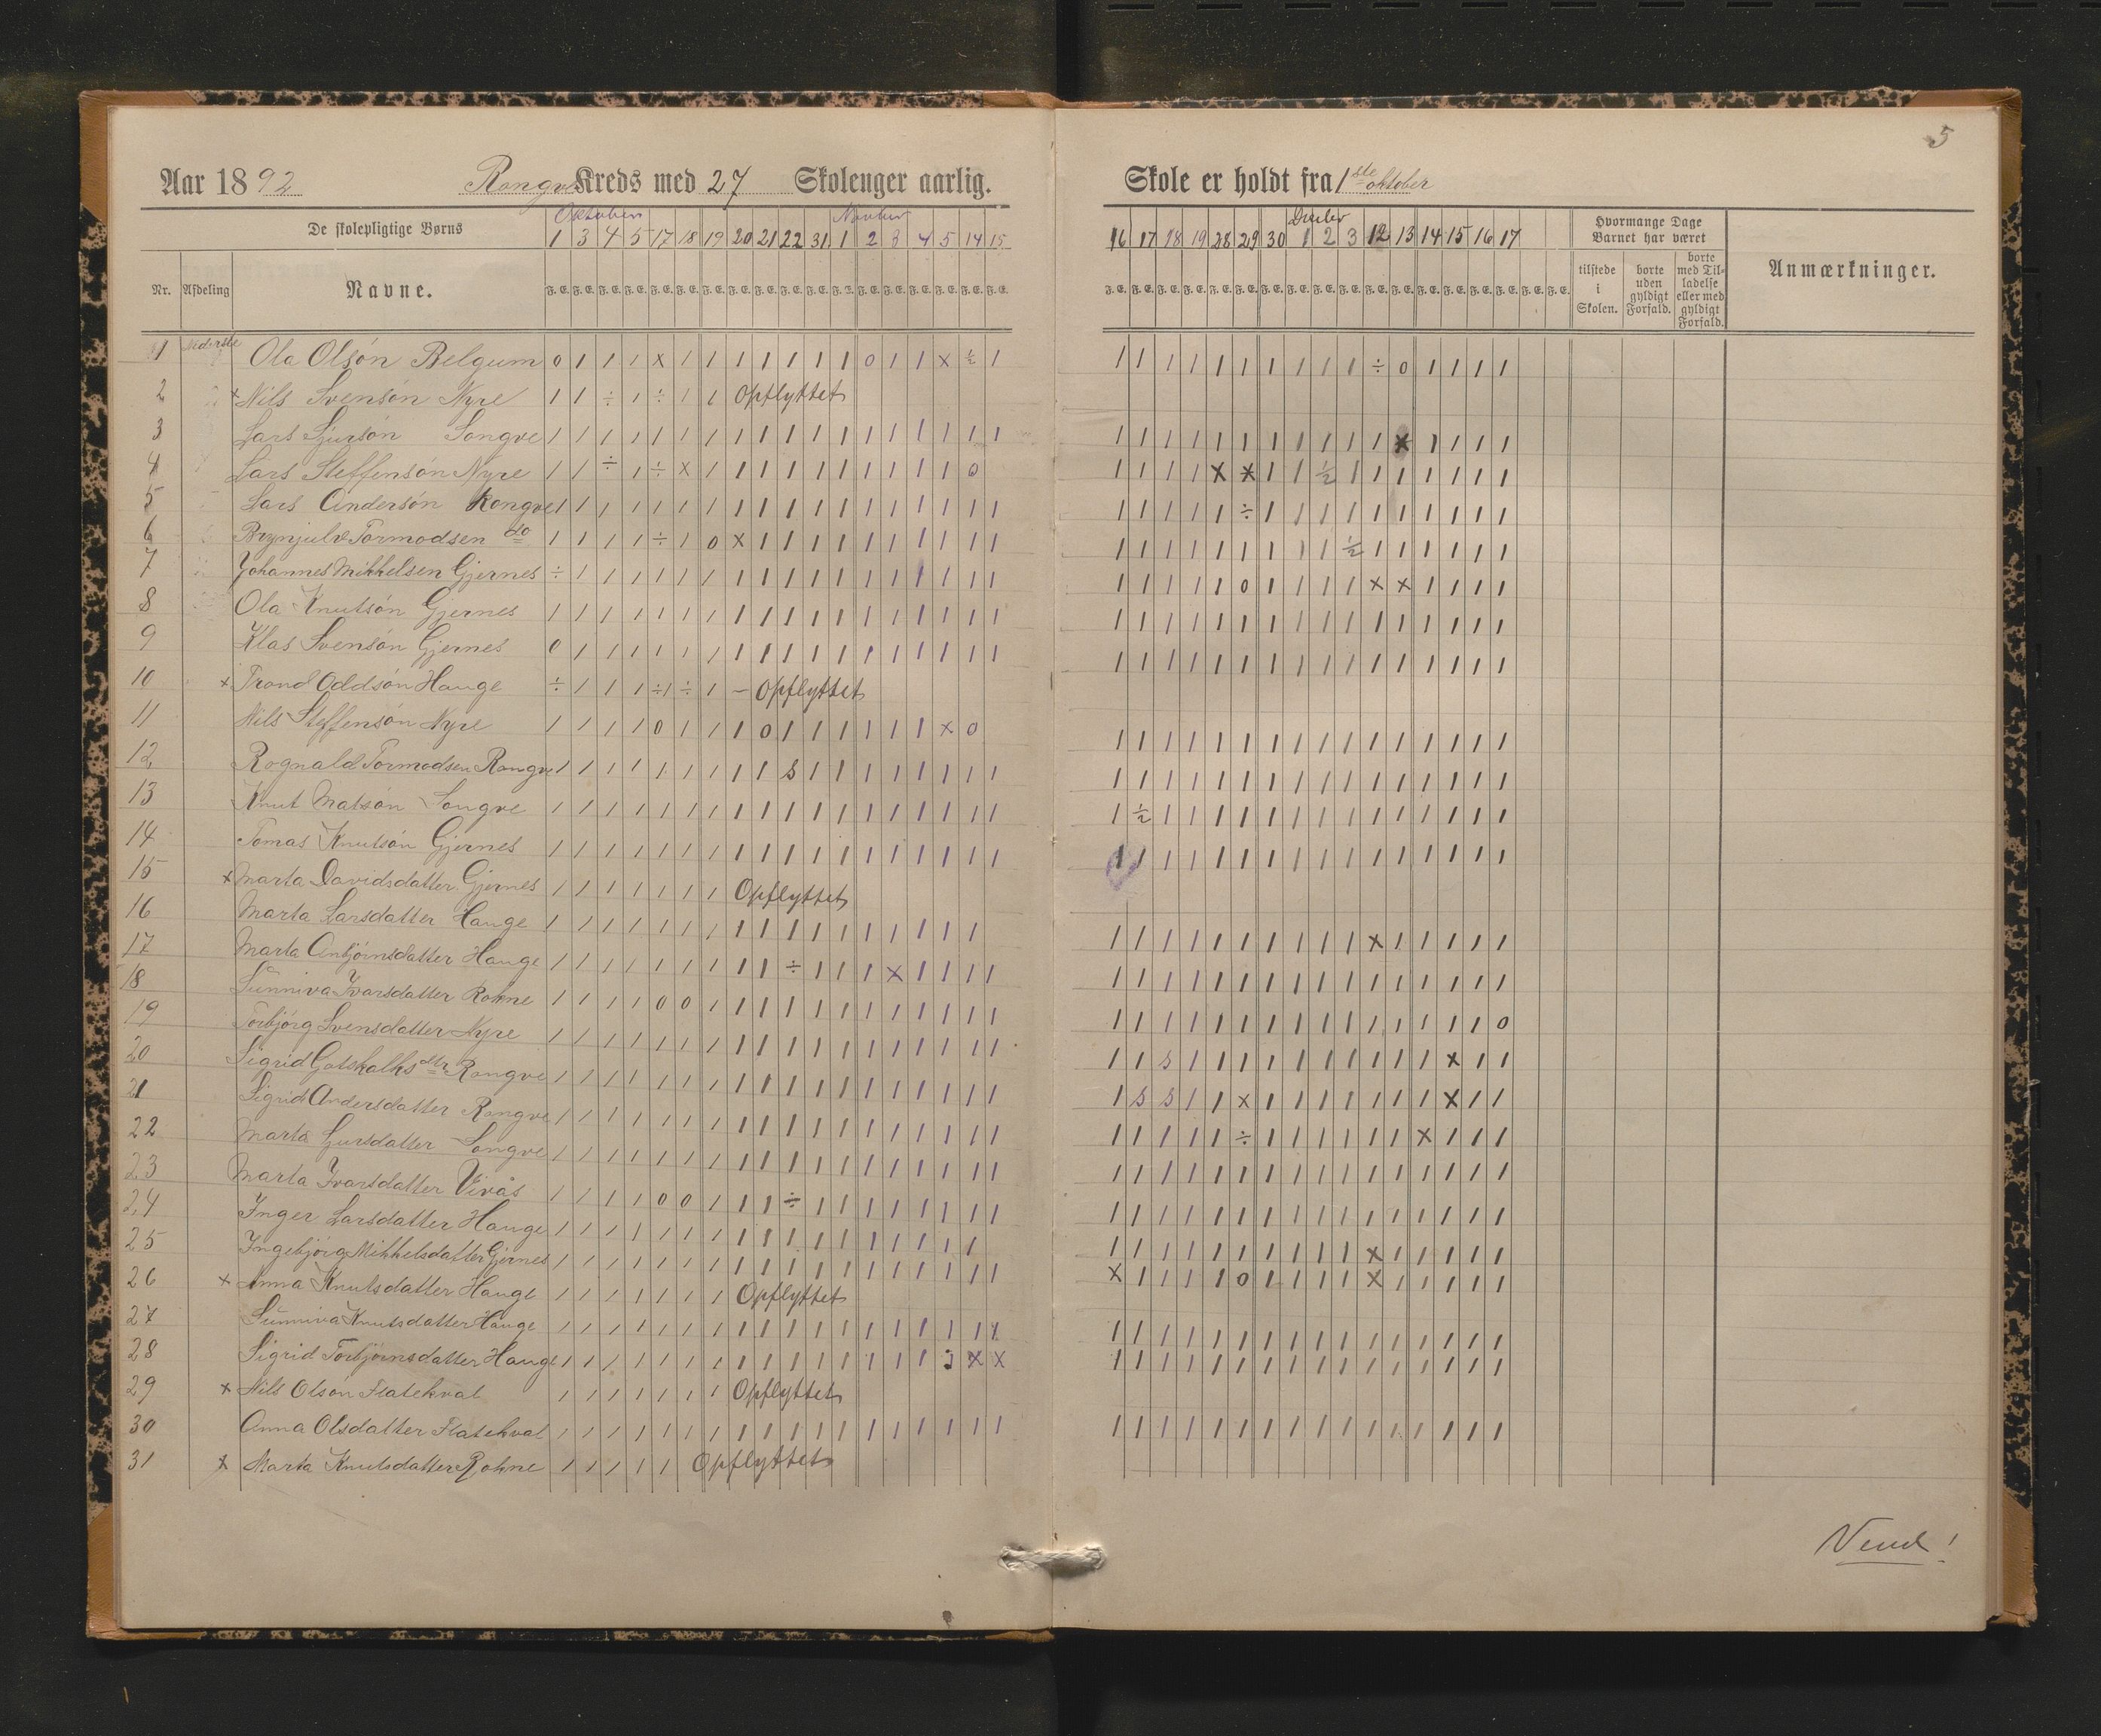 5
Aar 1892 Rongve Kreds med 27 Skoleuger aarlig. Skole er holdt fra 1ste oktober
De skolepligtige Børns Oktober
1 3 4 5 17 18 19 20 21 22 31 1 2 3 4 5 14 15
16 17 18 19 28 29 30 1 2 3 12 13 14 15 16 17
Hvormange Dage Barnet har været
Nr. Afdeling Navne. F. E. F. E. F. E. F. E. F. E. F. E. F. E. F. E. F. E. F. E. F. E. F. E. F. E. F. E. F. E. F. E. F. E. F. E.
tilstede i Skolen. borte uden gyldigt Forfald. borte med Tilladelse eller med gyldigt Forfald. Anmærkninger.
1 Nederste Ola Olsón Belgum 0 1 1 1 x 1 1 1 1 1 1 1 0 1 1 x ½ 1 1 1 1 1 1 1 1 1 1 1 ÷ 0 1 1 1 1
2 x Nils Svensón Nyre 1 1 ÷ 1 ÷ 1 1 Opflyttet
3 Lars Sjursón Songve 1 1 1 1 1 1 1 1 1 1 1 1 1 1 1 1 1 1 1 1 1 1 1 1 1 1 1 1 1 x 1 1 1 1
4 Lars Steffensón Nyre 1 1 ÷ 1 ÷ x 1 1 1 1 1 1 1 1 1 1 0 1 1 1 1 x x 1 1 ½ 1 1 1 1 1 1 1
5 Lars Andersón Rongve 1 1 1 1 1 1 1 1 1 1 1 1 1 1 1 1 1 1 1 1 1 1 1 ÷ 1 1 1 1 1 1 1 1 1 1
6 Brynjulv Tormodsen do 1 1 1 1 ÷ 1 0 x 1 1 1 1 1 1 1 1 1 1 1 1 1 1 1 1 1 1 1 ½ 1 1 1 1 1 1
7 Johannes Mikkelsen Gjernes ÷ 1 1 1 1 1 1 1 1 1 1 1 1 1 1 1 1 1 1 1 1 1 1 0 1 1 1 1 x x 1 1 1 1
8 Ola Knutsón Gjernes 1 1 1 1 1 1 1 1 1 1 1 1 1 1 1 1 1 1 1 1 1 1 1 1 1 1 1 1 1 1 1 1 1 1
9 Klas Svensón Gjernes 0 1 1 1 1 1 1 1 1 1 1 1 1 1 1 1 1 1 1 1 1 1 1 1 1 1 1 1 1 1 1 1 1 1
10 x Trond Oddsón Hauge ÷ 1 1 1 ÷1 ÷ 1 – Opflyttet
11 Nils Steffensón Nyre 1 1 1 1 0 1 1 1 0 1 1 1 1 1 1 x 0 1 1 1 1 1 1 1 1 1 1 1 1 1 1 1 1
12 Rognald Tormodsen Rongve 1 1 1 1 1 1 1 1 1 s 1 1 1 1 1 1 1 1 1 1 1 1 1 1 1 1 1 1 1 1 1 1 1 1
13 Knut Matsón Songve 1 1 1 1 1 1 1 1 1 1 1 1 1 1 1 1 1 1 1 ½ 1 1 1 1 1 1 1 1 1 1 1 1 1 1
14 Tomas Knutsón Gjernes 1 1 1 1 1 1 1 1 1 1 1 1 1 1 1 1 1 1 1 1 1 1 1 1 1 1 1 1 1 1 1 1 1 1
15 x Marta Davidsdatter Gjernes 1 1 1 1 1 1 1 Opflyttet
16 Marta Larsdatter Hauge 1 1 1 1 1 1 1 1 1 1 1 1 1 1 1 1 1 1 1 1 1 1 1 1 1 1 1 x 1 1 1 1 1
17 Marta Anbjörnsdatter Hauge 1 1 1 1 1 1 1 1 1 ÷ 1 1 1 x 1 1 1 1 1 1 1 1 1 1 1 1 1 1 1 1 1 1 1 1
18 Sünniva Ivarsdatter Rokne 1 1 1 1 0 0 1 1 1 1 1 1 1 1 1 1 1 1 1 1 1 1 1 1 1 1 1 1 1 1 1 1 1 0
19 Torbjörg Svensdatter Nyre 1 1 1 1 1 1 1 1 1 1 1 1 1 1 1 1 1 1 1 1 s 1 1 1 1 1 1 1 1 1 1 x 1 1
20 Sigrid Gotskalksdtr Rongve 1 1 1 1 1 1 1 1 1 1 1 1 1 1 1 1 1 1 1 s s 1 1 x 1 1 1 1 1 1 1 x 1 1
21 Sigrid Andersdatter Rongve 1 1 1 1 1 1 1 1 1 1 1 1 1 1 1 1 1 1 1 1 1 1 1 ÷ 1 1 1 1 1 1 x 1 1 1
22 Marta Sjursdatter Songve 1 1 1 1 1 1 1 1 1 1 1 1 1 1 1 1 1 1 1 1 1 1 1 1 1 1 1 1 1 1 1 1 1 1
23 Marta Ivarsdatter Virås 1 1 1 1 0 0 1 1 1 ÷ 1 1 1 1 1 1 1 1 1 1 1 1 1 1 1 1 1 1 1 1 1 1 1 1
24 Inger Larsdatter Hauge 1 1 1 1 1 1 1 1 1 1 1 1 1 1 1 1 1 1 1 1 1 1 1 1 1 1 1 x 1 1 1 1 1
25 Ingebjörg Mikkelsdatter Gjernes 1 1 1 1 1 1 1 1 1 1 1 1 1 1 1 1 1 1 x 1 1 1 1 0 1 1 1 1 x 1 1 1 1 1
26 x Anna Knutsdatter Hauge 1 1 1 1 1 1 1 Opflyttet
27 Sünniva Knutsdatter Hauge 1 1 1 1 1 1 1 1 1 1 1 1 1 1 1 1 1 x 1 1 1 1 1 1 1 1 1 1 1 1 1 1 1 1
28 Sigrid Torbjörnsdatter Hauge 1 1 1 1 1 1 1 1 1 1 1 1 1 1 1 1 x x 1 1 1 1 1 1 1 1 1 1 1 1 1 1 1 1
29 x Nils Olsón Flatekval 1 1 1 1 1 1 1 Opflyttet
30 Anna Olsdatter Flatekval 1 1 1 1 1 1 1 1 1 1 1 1 1 1 1 1 1 1 1 1 1 1 1 1 1 1 1 1 1 1 1 1 1 1
31 x Marta Knutsdatter Rokne 1 1 1 1 1 Opflyttet
Vend!